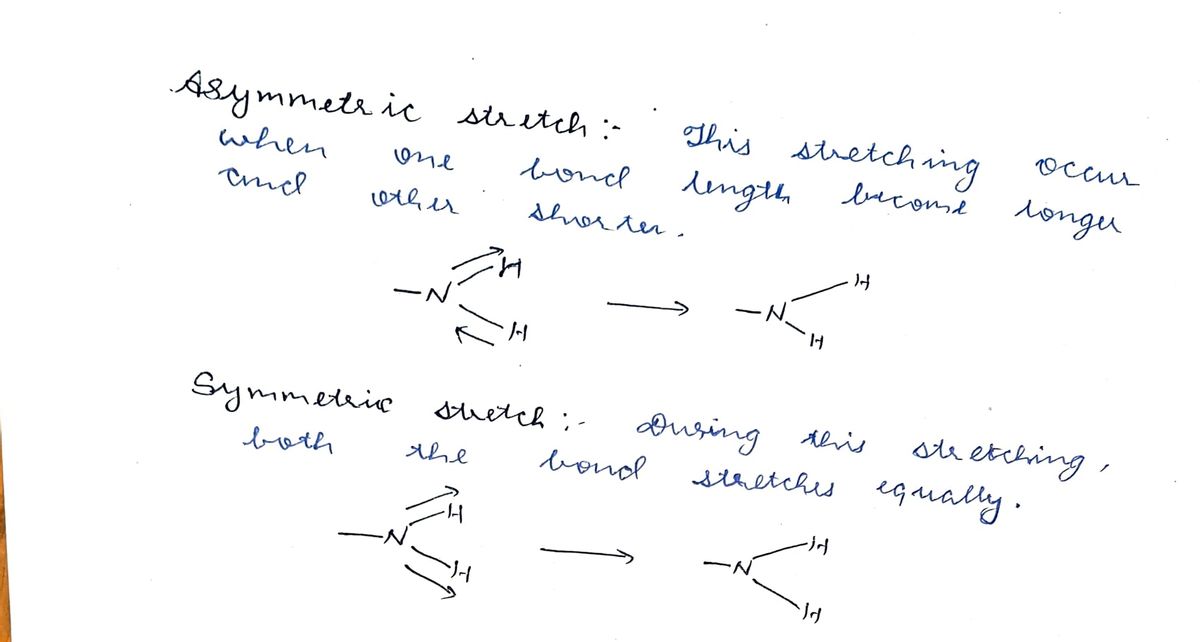 Asymmetric stretch :- This stretching occur
when one bond length become longer
and other shorter.
H
-N → -N H
H H
Symmetric stretch :- During this stretching,
both the bond stretches equally.
H H
-N → -N
H H